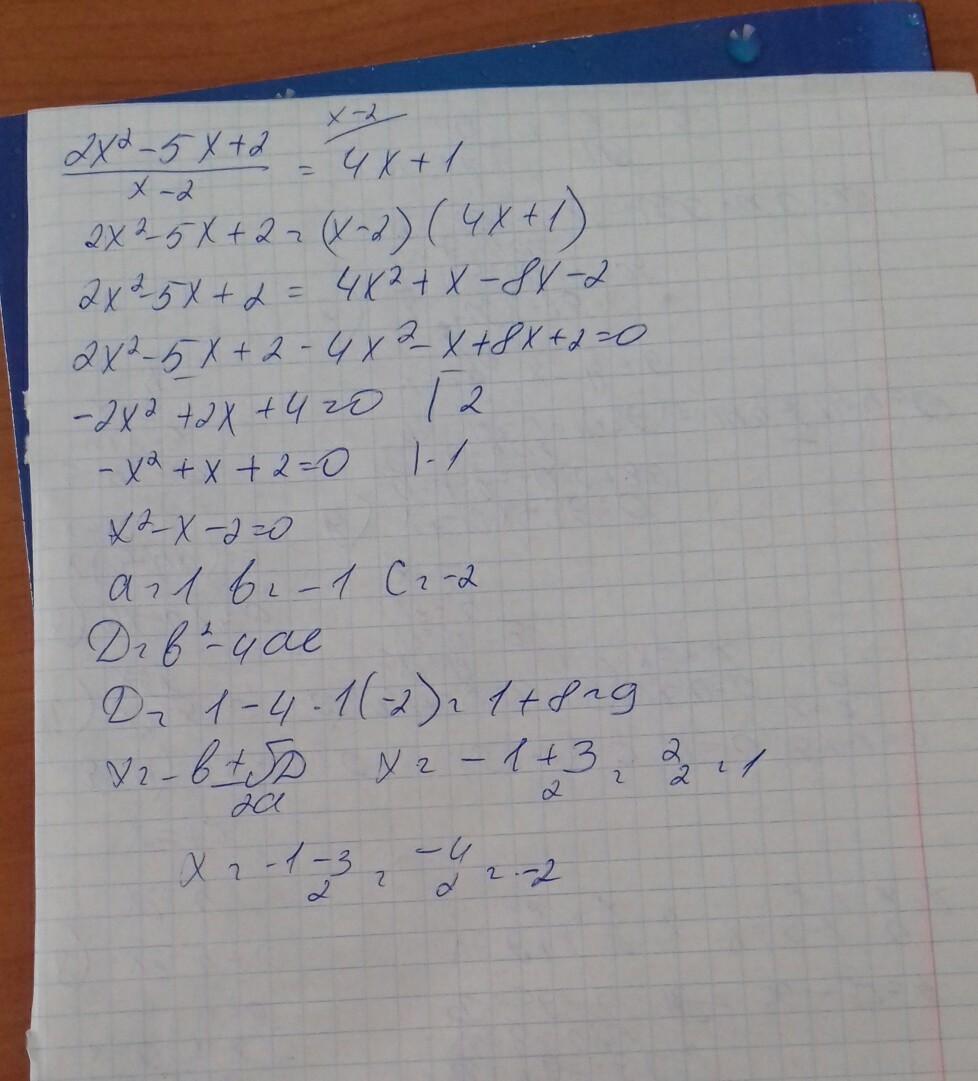 x-2
(2x²-5x+2)/(x-2) = 4x+1
2x²-5x+2 = (x-2)(4x+1)
2x²-5x+2 = 4x²+x-8x-2
2x²-5x+2-4x²-x+8x+2=0
-2x²+2x+4=0 | 2
-x²+x+2=0 |-1
x²-x-2=0
a=1 b=-1 c=-2
D=b²-4ac
D= 1-4·1(-2)= 1+8=9
x= (-b±√D)/2a x= (-1+3)/2 = 2/2 = 1
x= (-1-3)/2 = -4/2 = -2